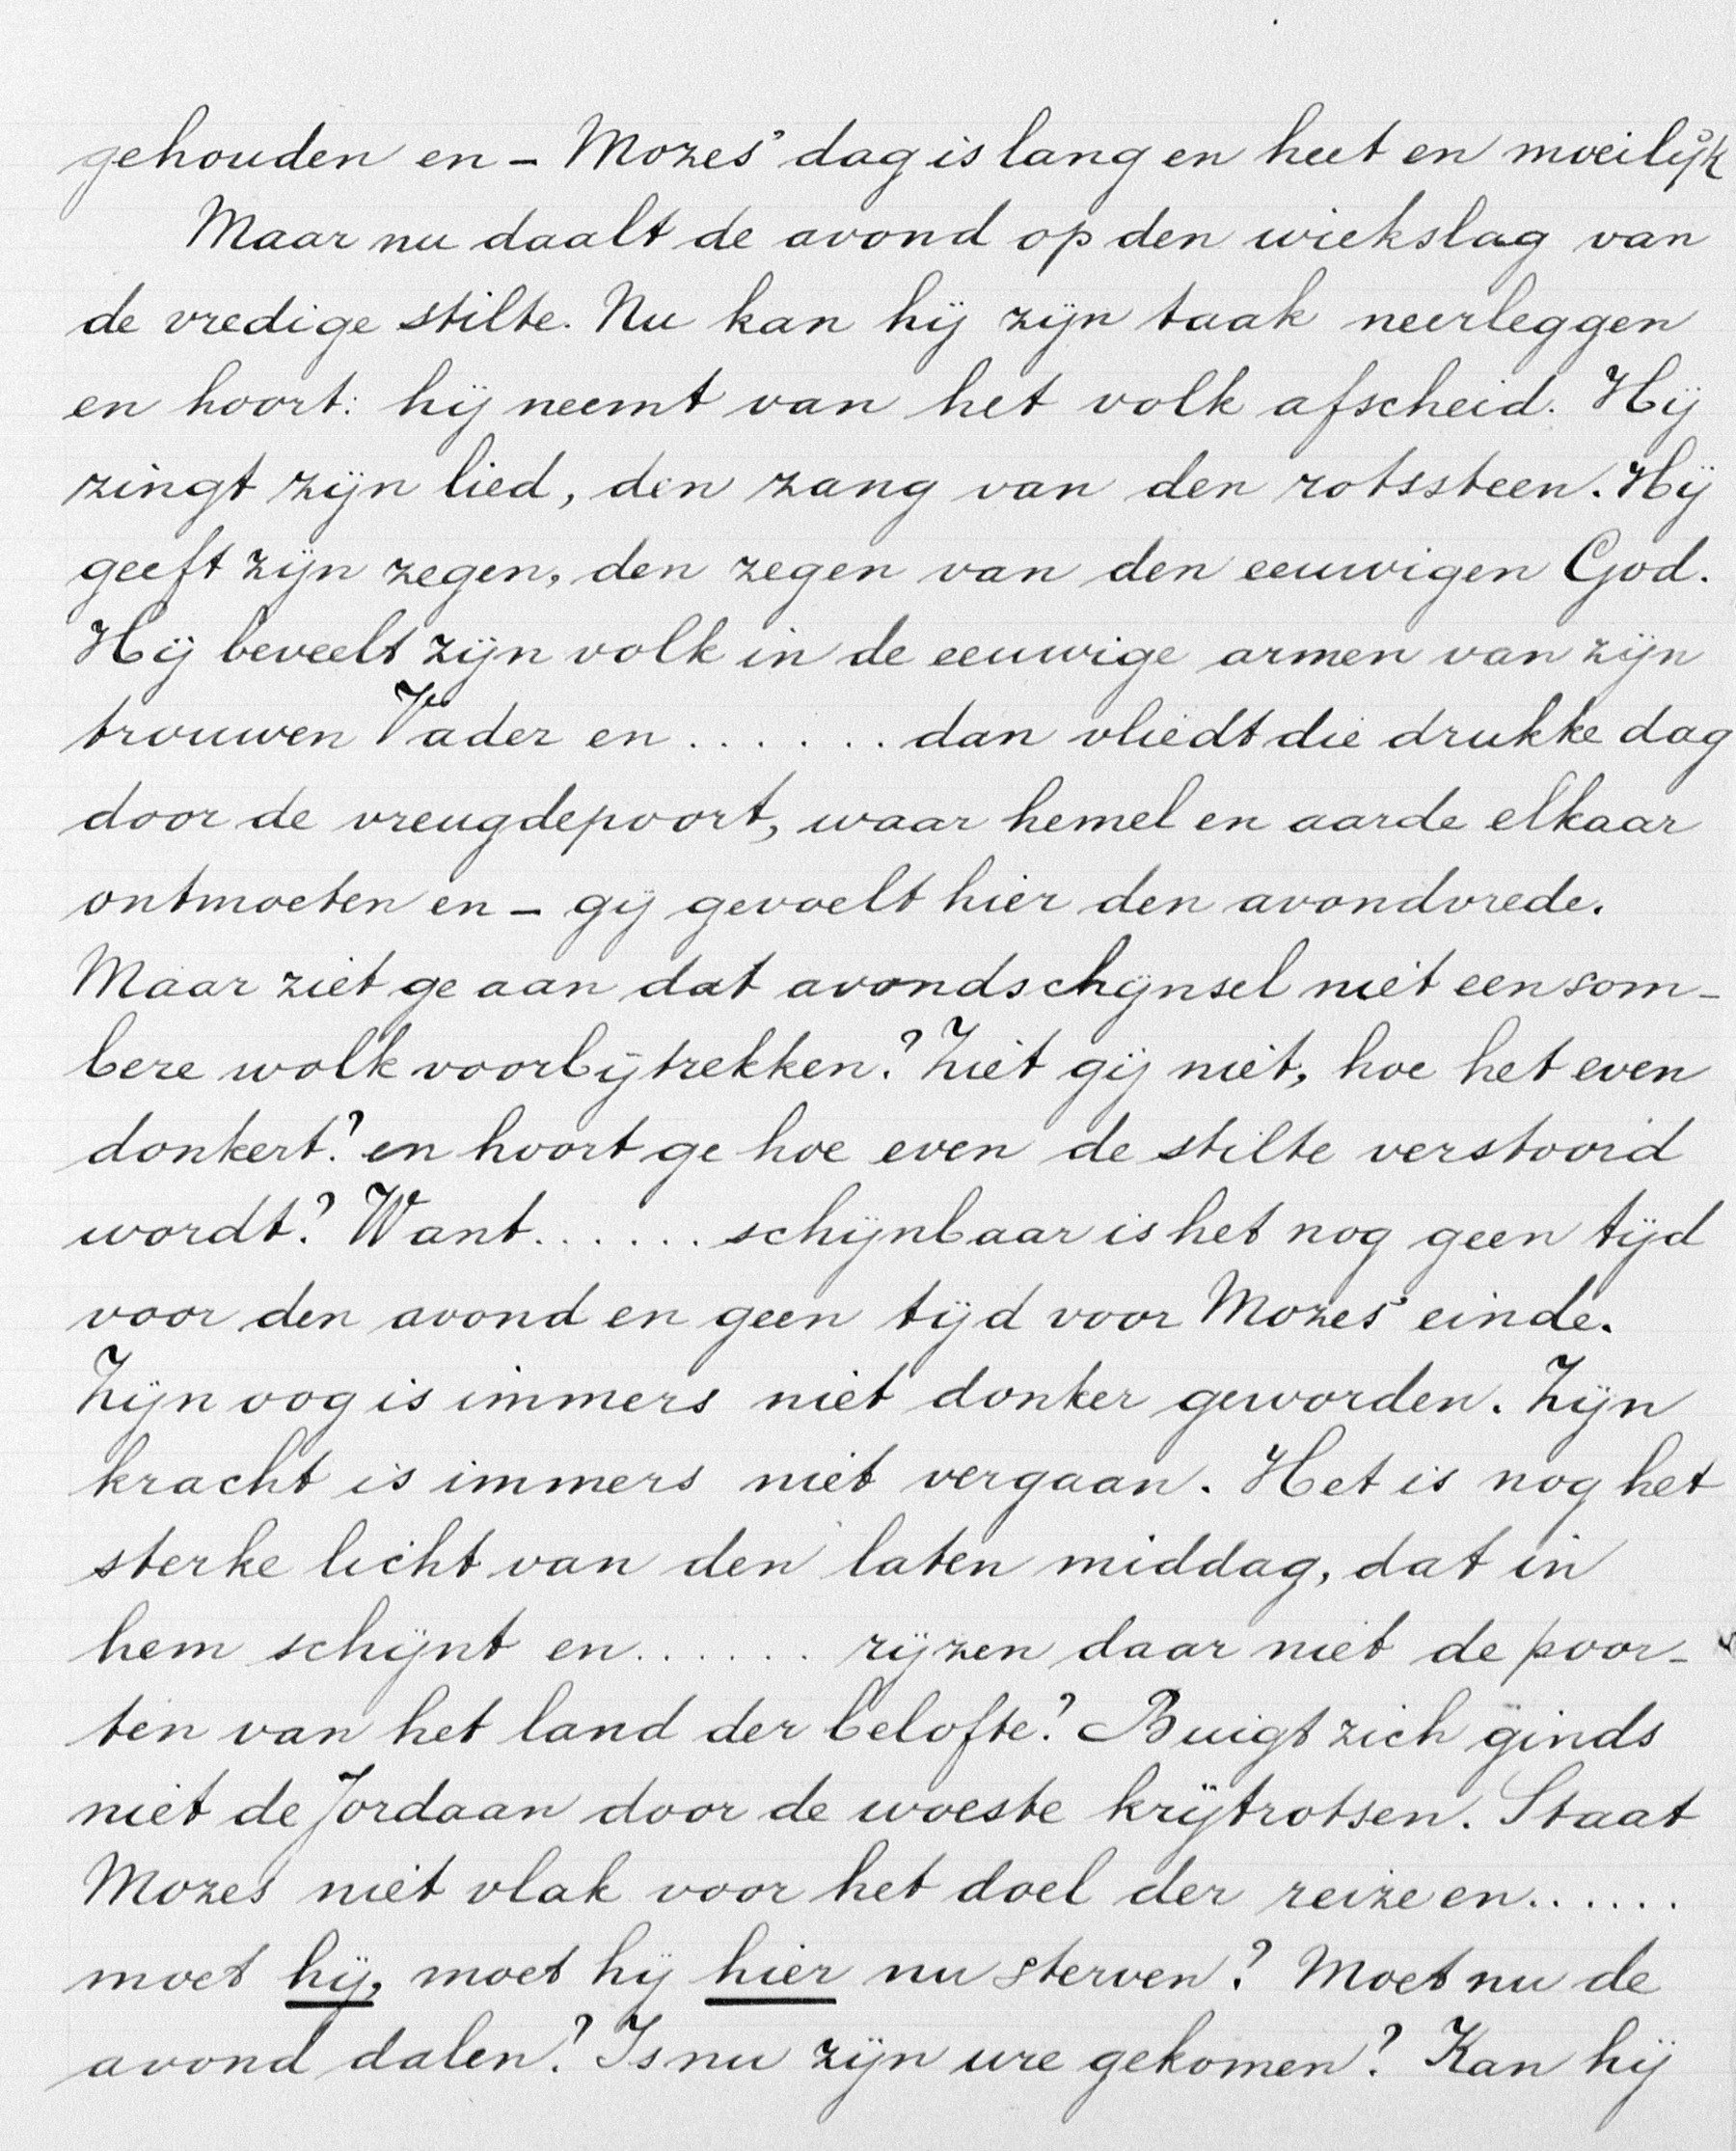 gehouden en - Mozes' dag is lang en heet en moeilijk
Maar nu daalt de avond op den wiekslag van
de vredige stilte. Nu kan hij zijn taak neerleggen
en hoort: hij neemt van het volk afscheid. Hij
zingt zijn lied, den zang van den rotssteen. Hij
geeft zijn zegen, den zegen van den eeuwigen God.
Hij beveelt zijn volk in de eeuwige armen van zijn
trouwen Vader en ...... dan vliedt die drukke dag
door de vreugdepoort, waar hemel en aarde elkaar
ontmoeten en - gij gevoelt hier den avondvrede.
Maar ziet ge aan dat avondschijnsel niet een som-
bere wolk voorbijtrekken? Ziet gij niet, hoe het even
donkert? en hoort ge hoe even de stilte verstoord
wordt? Want...... schijnbaar is het nog geen tijd
voor den avond en geen tijd voor Mozes' einde.
Zijn oog is immers niet donker geworden. Zijn
kracht is immers niet vergaan. Het is nog het
sterke licht van den laten middag, dat in
hem schijnt en...... rijzen daar niet de poor-
ten van het land der belofte? Buigt zich ginds
niet de Jordaan door de woeste krijtrotsen. Staat
Mozes niet vlak voor het doel der reize en......
moet hij, moet hij hier nu sterven? Moet nu de
avond dalen? Is nu zijn ure gekomen? Kan hij